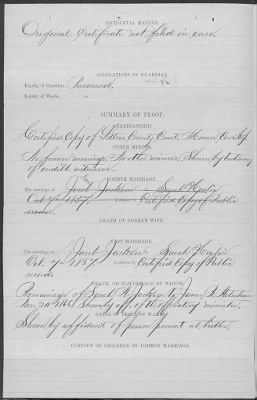 INCIDENTAL MATTER.
Original Certificate not filed in case.
ALLEGATIONS OF GUARDIAN.
Loyalty of Guardian, Presumed.
Loyalty of Wards,
SUMMARY OF PROOF.
GUARDIANSHIP.
Certified Copy of Letters County Court, Monroe Co.
OTHER MINORS.
No former marriage. No other minors. Shown by testimony
of credible witnesses.
FORMER MARRIAGE.
The marriage of Jacob Jackson Sarah
Oct 7 1857 is shown by Certified Copy of Public
records.
DEATH OF FORMER WIFE.
LAST MARRIAGE.
The marriage of Jacob Jackson Sarah
Oct 7 1857 is shown by Certified Copy of Public
records
DEATH, OR REMARRIAGE, OF WIDOW.
Remarriage of Sarah Jackson to
Shown by aff. of the officiating minister.
DATES OF BIRTH OF WARDS.
Shown by affidavit of person present at births.
CUSTODY OF CHILDREN BY FORMER MARRIAGE.